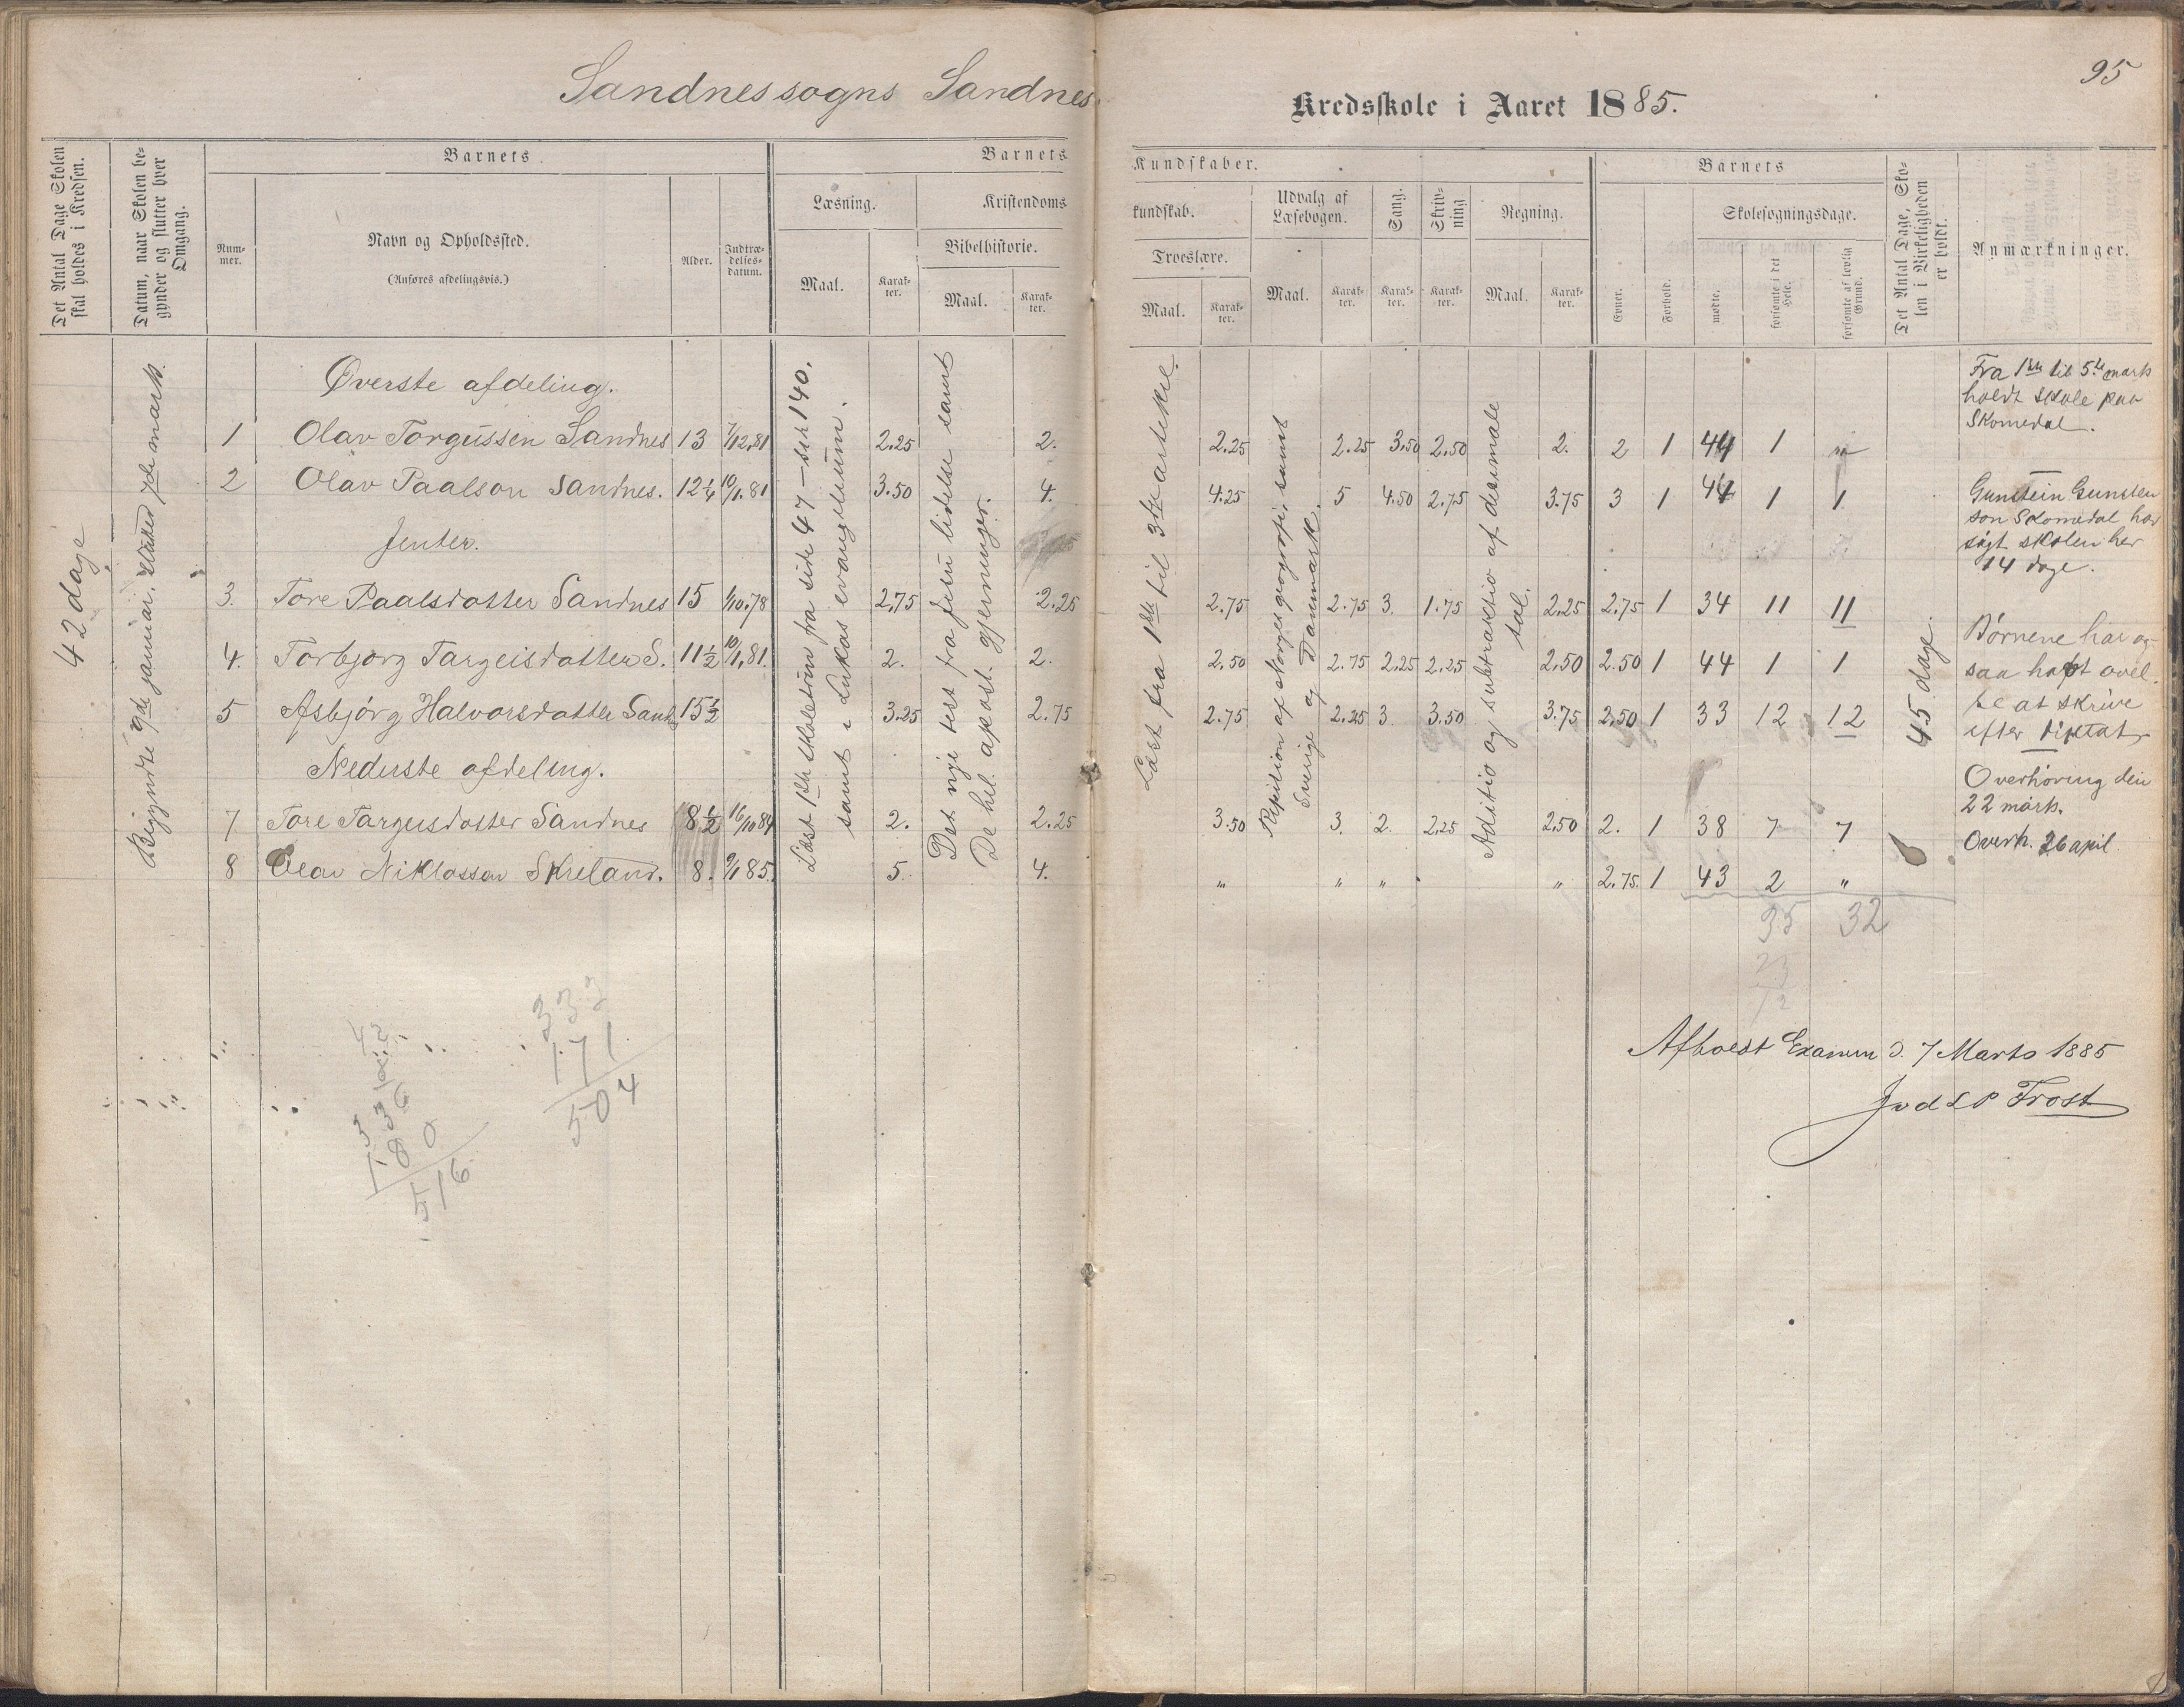 Sandnes sogns Sandnes
95
Kredsskole i Aaret 1885.
Det Antal Dage Skolen skal holdes i Kredsen.
Datum, naar Skolen begynder og slutter hver Omgang.
Barnets
Nummer.
Navn og Opholdssted.
(Anføres afdelingsvis.)
Alder.
Indtrædelsesdatum.
Barnets Kundskaber.
Læsning.
Maal.
Karakter.
Kristendomskundskab.
Bibelhistorie.
Maal.
Karakter.
Troeslære.
Maal.
Karakter.
Udvalg af Læsebogen.
Maal.
Karakter.
Sang.
Karakter.
Skrivning
Karakter.
Regning.
Maal.
Karakter.
Barnets
Evner.
Forhold.
Skolesøgningsdage.
mødte.
forsømte i det Hele.
forsømte af lovlig Grund.
Det Antal Dage, Skolen i Virkeligheden er holdt.
Anmærkninger.
42 dage
Begyndte 9de januar, sluttet 7de marts.
Læst 1ste skoletrin fra side 47 – 140.
samt i Lukas evangelium.
Det nye test fra Jesu lidelse samt
De hel. apost. gjerninger.
Læst fra 1ste til 3die artikel.
Repitition af Norges geografi, samt
Sverige og Danmark.
Aditio og subtraktio af desimale
tal.
45 dage.
Øverste afdeling.
1 Olav Torgussen Sandnes 13 7/12.81 2.25 2. 2.25 2.25 3.50 2.50 2. 2 1 44 1 "
2 Olav Paalson Sandnes. 12 1/4 10/1.81 3.50 4. 4.25 5 4.50 2.75 3.75 3 1 44 1 1
Jenter.
3. Tore Paalsdatter Sandnes 15 1/10.78 2.75 2.25 2.75 2.75 3. 1.75 2.25 2.75 1 34 11 11
4. Torbjørg Targeisdatter S. 11 1/2 10/1.81. 2. 2. 2.50 2.75 2.25 2.25 2.50 2.50 1 44 1 1
5 Asbjørg Halvorsdatter Sand 15 1/2 3.25 2.75 2.75 2.25 3. 3.50 3.75 2.50 1 33 12 12
Nederste afdeling.
7 Tore Targeisdotter Sandnes 8 1/2 16/10 84 2. 2.25 3.50 3. 2. 2.25 2.50 2. 1 38 7 7
8 Olav Niklosson Skreland. 8. 9/1 85. 5. 4. " " " " 2.75. 1 43 2 "
35 32
Fra 1ste til 5te marts
holdt skole paa
Skomedal.
Gunstein Gunsten
son Skomedal har
søgt skolen her
14 dage.
Børnene har og-
saa haft øvel-
se at skrive
efter diktat.
Overhøring den
22 marts.
Overh. 26 april.
332
171
504
42
336
180
516
Afholdt Examen d. 7 Marts 1885
Frost